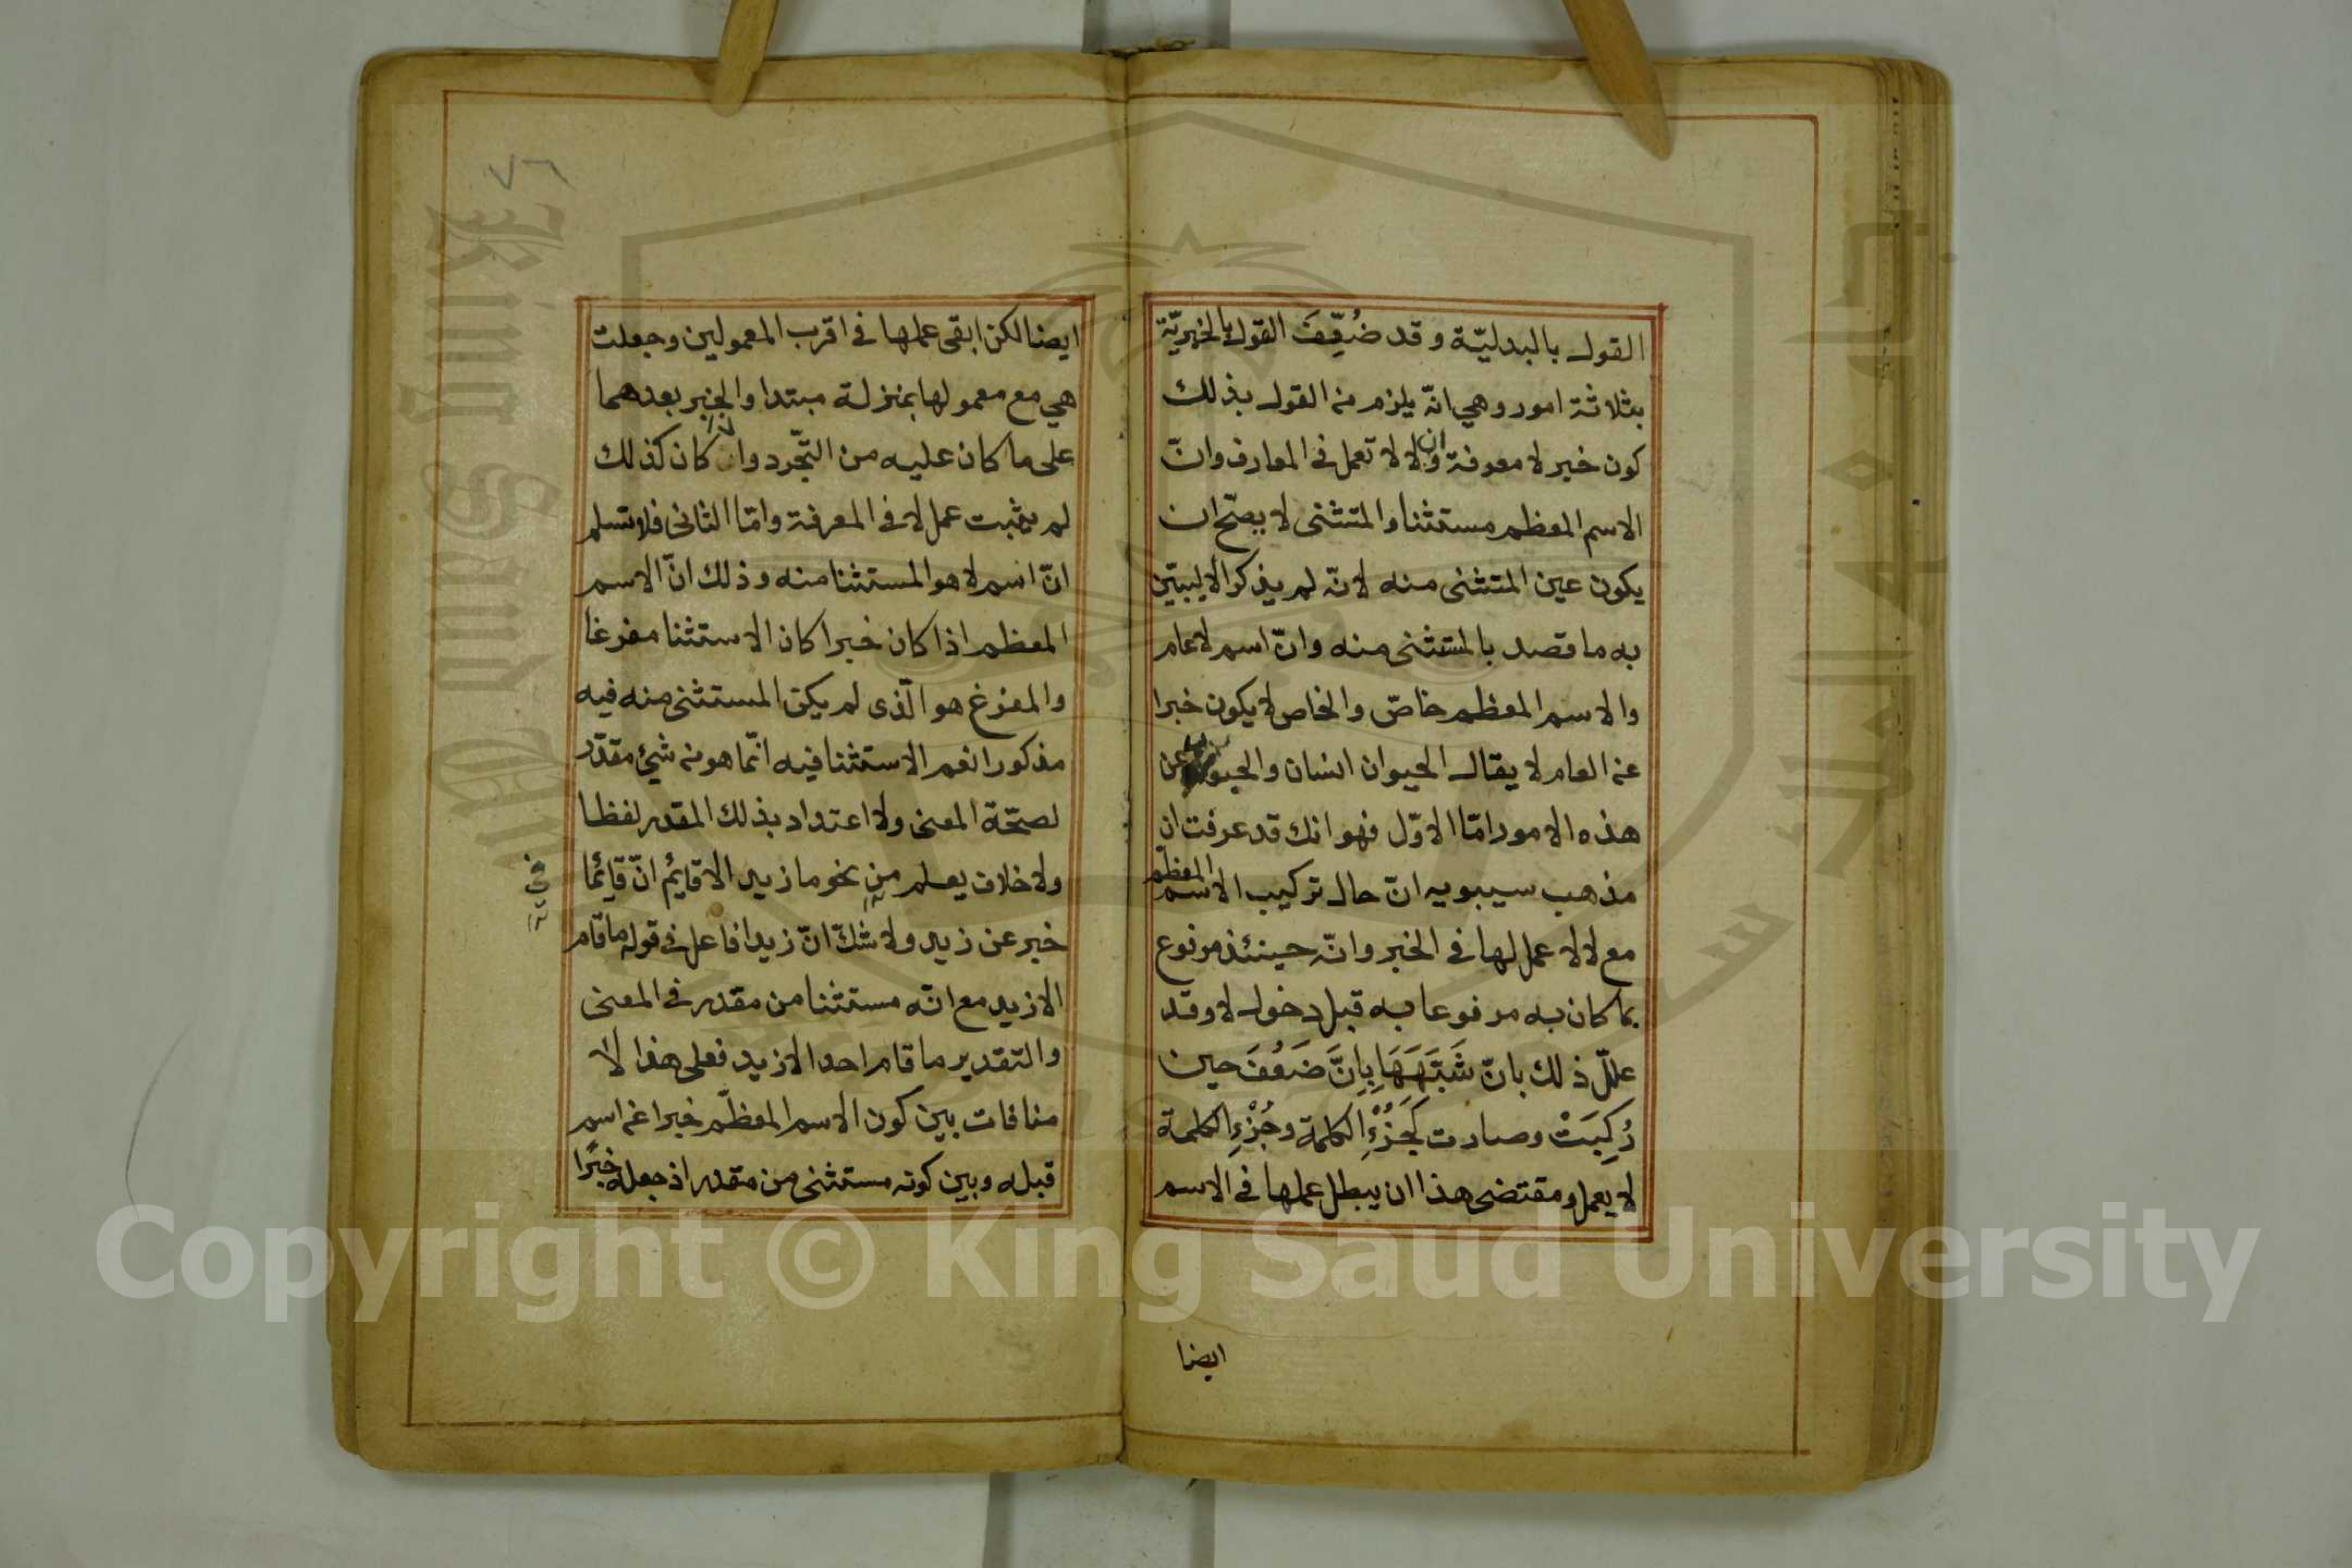 القول بالبدليّة وقد ضُعِّفَ القول بالخبريّة
بثلاثة امور وهي انّه يلزم من القول بذلك
كون خبر لا معرفة وان لا لا تعمل في المعارف وانّ
الاسم المعظم مستثنا والمتثنى لا يصحّ ان
يكون عين المتثنى منه لانّه لم يذكر الا ليبيّن
به ما قصد بالمستثنى منه وانّ اسم لا عام
والاسم المعظم خاصّ والخاص لا يكون خبرا
عن العام لا يقال الحيوان انسان والجواب عن
هذه الامور امّا الاوّل فهو انك قد عرفت ان
مذهب سيبويه انّ حال تركيب الاسم المعظم
مع لا لا عمل لها في الخبر وانّه حينئذ مرفوع
بما كان به مرفوعا به قبل دخول لا وقد
علّل ذلك بانّ شَبَهَهَا بِاِنَّ ضَعُفَ حين
رُكِبَتْ وصارت كَجُزْءِ الكلمة وجُزْءِ الكلمة
لا يعمل ومقتضى هذا ان يبطل عملها في الاسم
ايضا
٧٦
ايضا لكن ابقى عملها في اقرب المعمولين وجعلت
هي مع معمولها بمنزلة مبتدا والخبر بعدهما
على ما كان عليه من التّجرد واذا كان كذلك
لم يثبت عمل لا في المعرفة وامّا الثانى فلا نسلم
انّ اسم لا هو المستثنا منه وذلك انّ الاسم
المعظم اذا كان خبرا كان الاستثنا مفرغا
والمفرغ هو الّذى لم يكن المستثنى منه فيه
مذكورا نعم الاستثنا فيه انّما هو من شئ مقدّر
لصحّة المعنى ولا اعتداد بذلك المقدر لفظا
ولا خلاف يعلم من نحو ما زيد الا قايُم انّ قائما
في
خبر عن زيد ولا شكّ انّ زيدا فاعل في قوله ما قام
الا زيد مع انّه مستثنا من مقدر في المعنى
والتقدير ما قام احد الا زيد فعلى هذا لا
منافات بين كون الاسم المعظّم خبرا عن اسم
قبله وبين كونه مستثنى من مقدر اذ جعله خبرًا
Copyright © King Saud University
King Saud Un